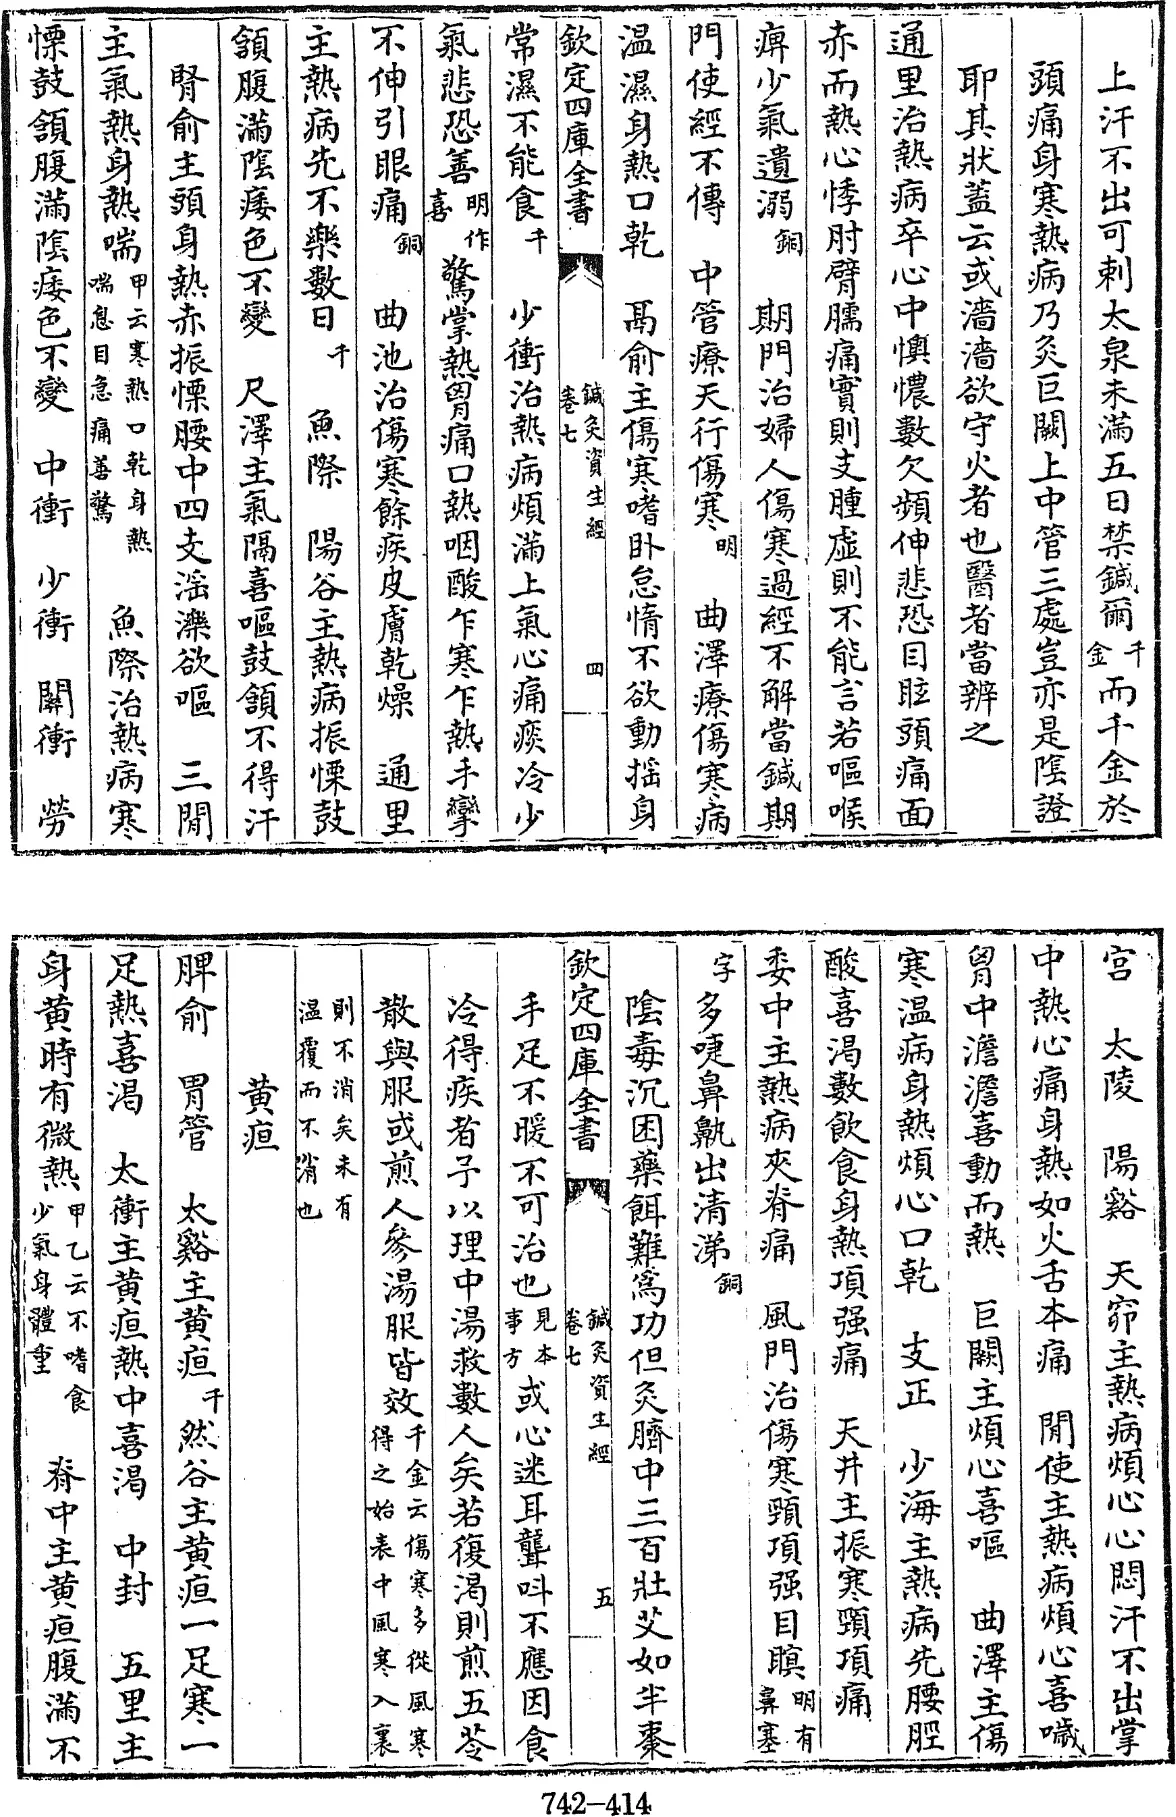 上汗不出可刺太泉未滿五日禁鍼爾千金而千金於
頭痛身寒熱病乃灸巨闕上中管三處豈亦是隂證
耶其狀蓋云或濇濇欲守火者也醫者當辨之
通里治熱病卒心中懊憹數欠頻伸悲恐目眩頭痛面
赤而熱心悸肘臂臑痛實則支腫虛則不能言若嘔喉
痺少氣遺溺銅　期門治婦人傷寒過經不解當鍼期
門使經不傳　中管療天行傷寒明　曲澤療傷寒病
温濕身熱口乾　鬲俞主傷寒嗜卧怠惰不欲動揺身
欽定四庫全書　鍼灸資生經　卷七　四
常濕不能食千　少衝治熱病煩滿上氣心痛痰冷少
氣悲恐善明作喜驚掌熱胷痛口熱咽酸乍寒乍熱手攣
不伸引眼痛銅　曲池治傷寒餘疾皮膚乾燥　通里
主熱病先不樂數日千　魚際　陽谷主熱病振慄鼓
頷腹滿隂痿色不變　尺澤主氣隔喜嘔鼓頷不得汗
腎俞主頭身熱赤振慄腰中四支淫濼欲嘔　三閒
主氣熱身熱喘甲云寒熱口乾身熱喘息目急痛善驚　魚際治熱病寒
慄鼓頷腹滿隂痿色不變　中衝　少衝　關衝　勞
宫　太陵　陽谿　天窌主熱病煩心心悶汗不出掌
中熱心痛身熱如火舌本痛　閒使主熱病煩心喜噦
胷中澹澹喜動而熱　巨闕主煩心喜嘔　曲澤主傷
寒温病身熱煩心口乾　支正　少海主熱病先腰脛
酸喜渴數飲食身熱項强痛　天井主振寒頸項痛
委中主熱病夾脊痛　風門治傷寒頸項强目瞑明有鼻塞
字多嚏鼻鼽出清涕銅
隂毒沉困藥餌難爲功但灸臍中三百壯艾如半棗
欽定四庫全書　鍼灸資生經　卷七　五
手足不暖不可治也見本事方或心迷耳聾呌不應因食
冷得疾者予以理中湯救數人矣若復渴則煎五苓
散與服或煎人參湯服皆效千金云傷寒多從風寒得之始表中風寒入裏
則不消矣未有温覆而不消也
黄疸
脾俞　胃管　太谿主黄疸千然谷主黄疸一足寒一
足熱喜渴　太衝主黄疸熱中喜渴　中封　五里主
身黄時有微熱甲乙云不嗜食少氣身體重　脊中主黄疸腹滿不
742-414